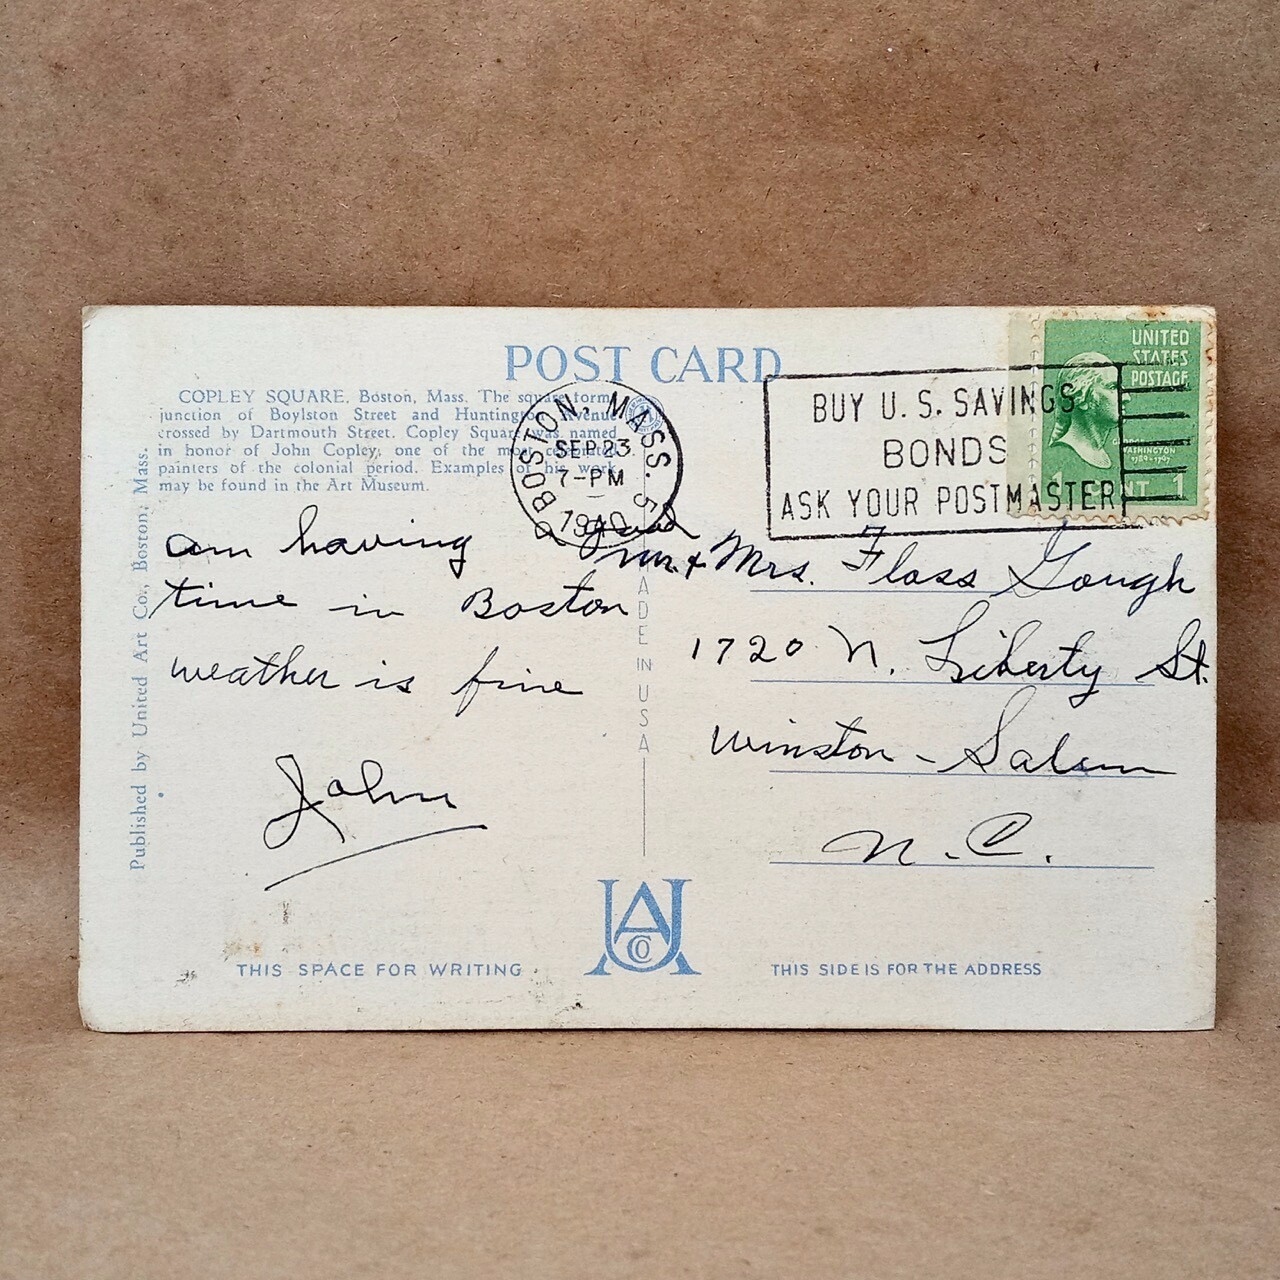 POST CARD
COPLEY SQUARE, Boston, Mass. The square forms
junction of Boylston Street and Huntington Avenue
crossed by Dartmouth Street. Copley Square was named
in honor of John Copley, one of the most celebrated
painters of the colonial period. Examples of his work
may be found in the Art Museum.
Published by United Art Co., Boston, Mass.
BOSTON, MASS. 5
SEP 23
7-PM
1940
BUY U.S. SAVINGS
BONDS
ASK YOUR POSTMASTER
UNITED
STATES
POSTAGE
WASHINGTON
1789-1797
1 CENT 1
am having a good
time in Boston
weather is fine
John
MADE IN USA
Mr. & Mrs. Floss Gough
1720 N. Liberty St.
Winston-Salem
N.C.
UACO
THIS SPACE FOR WRITING
THIS SIDE IS FOR THE ADDRESS